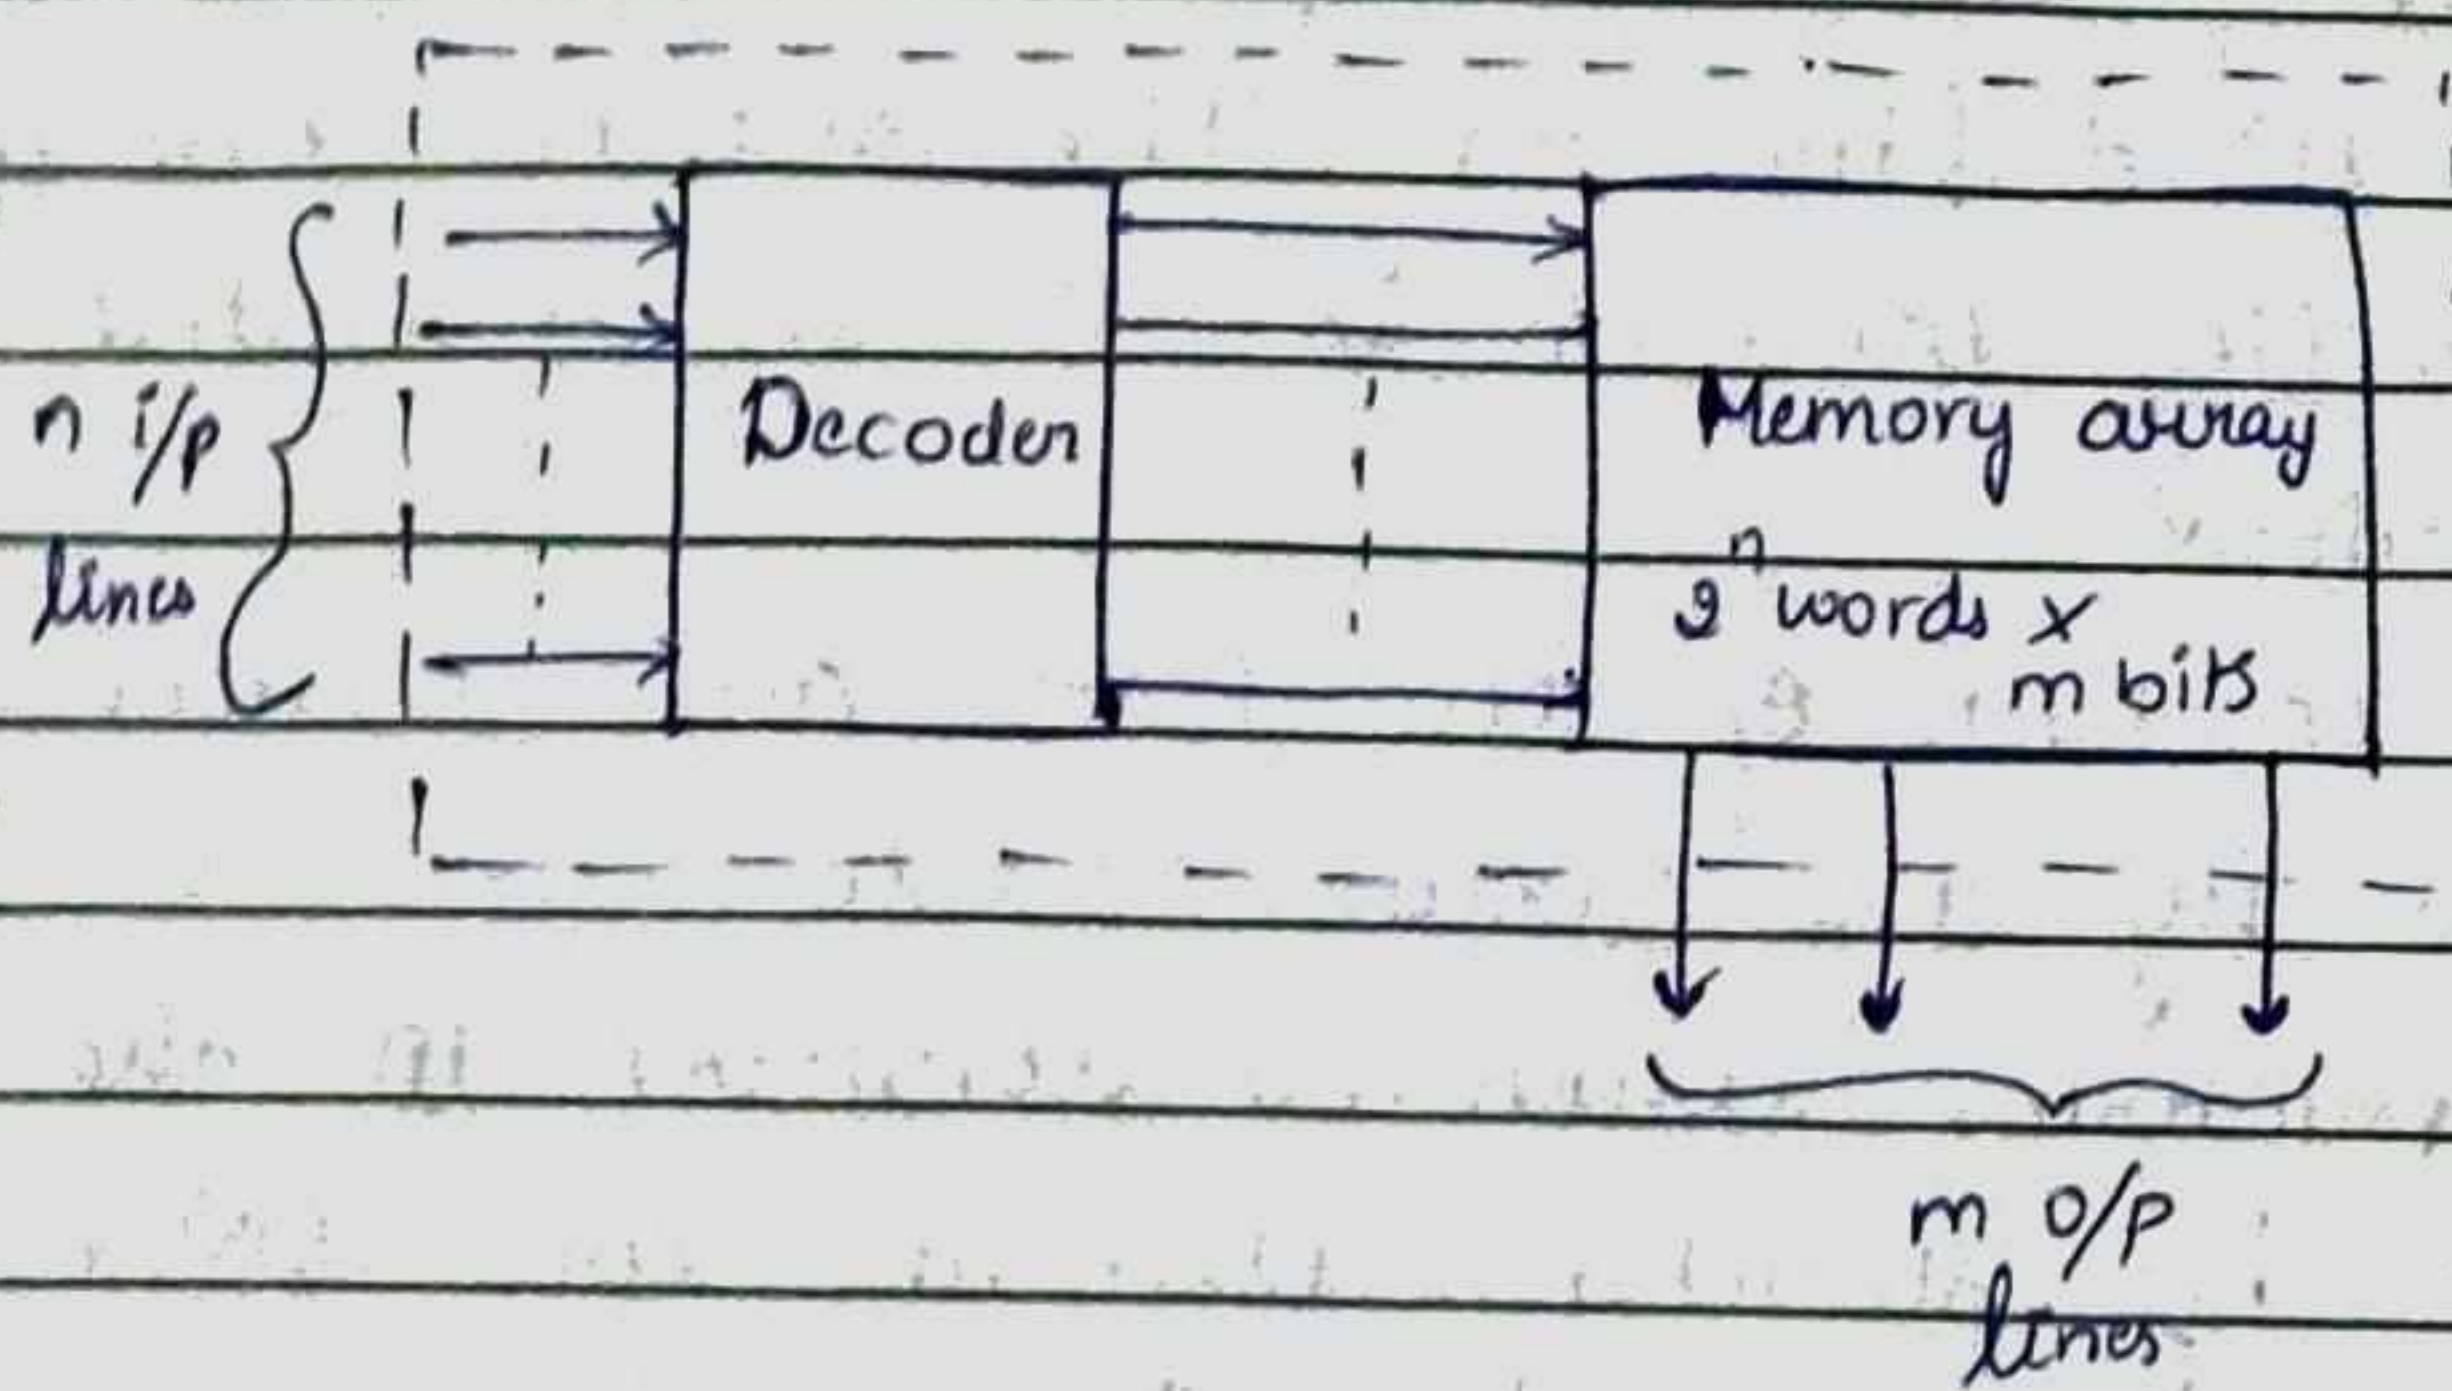 n i/p
lines
Decoder
Memory array
2ⁿ words x
m bits
m o/p
lines